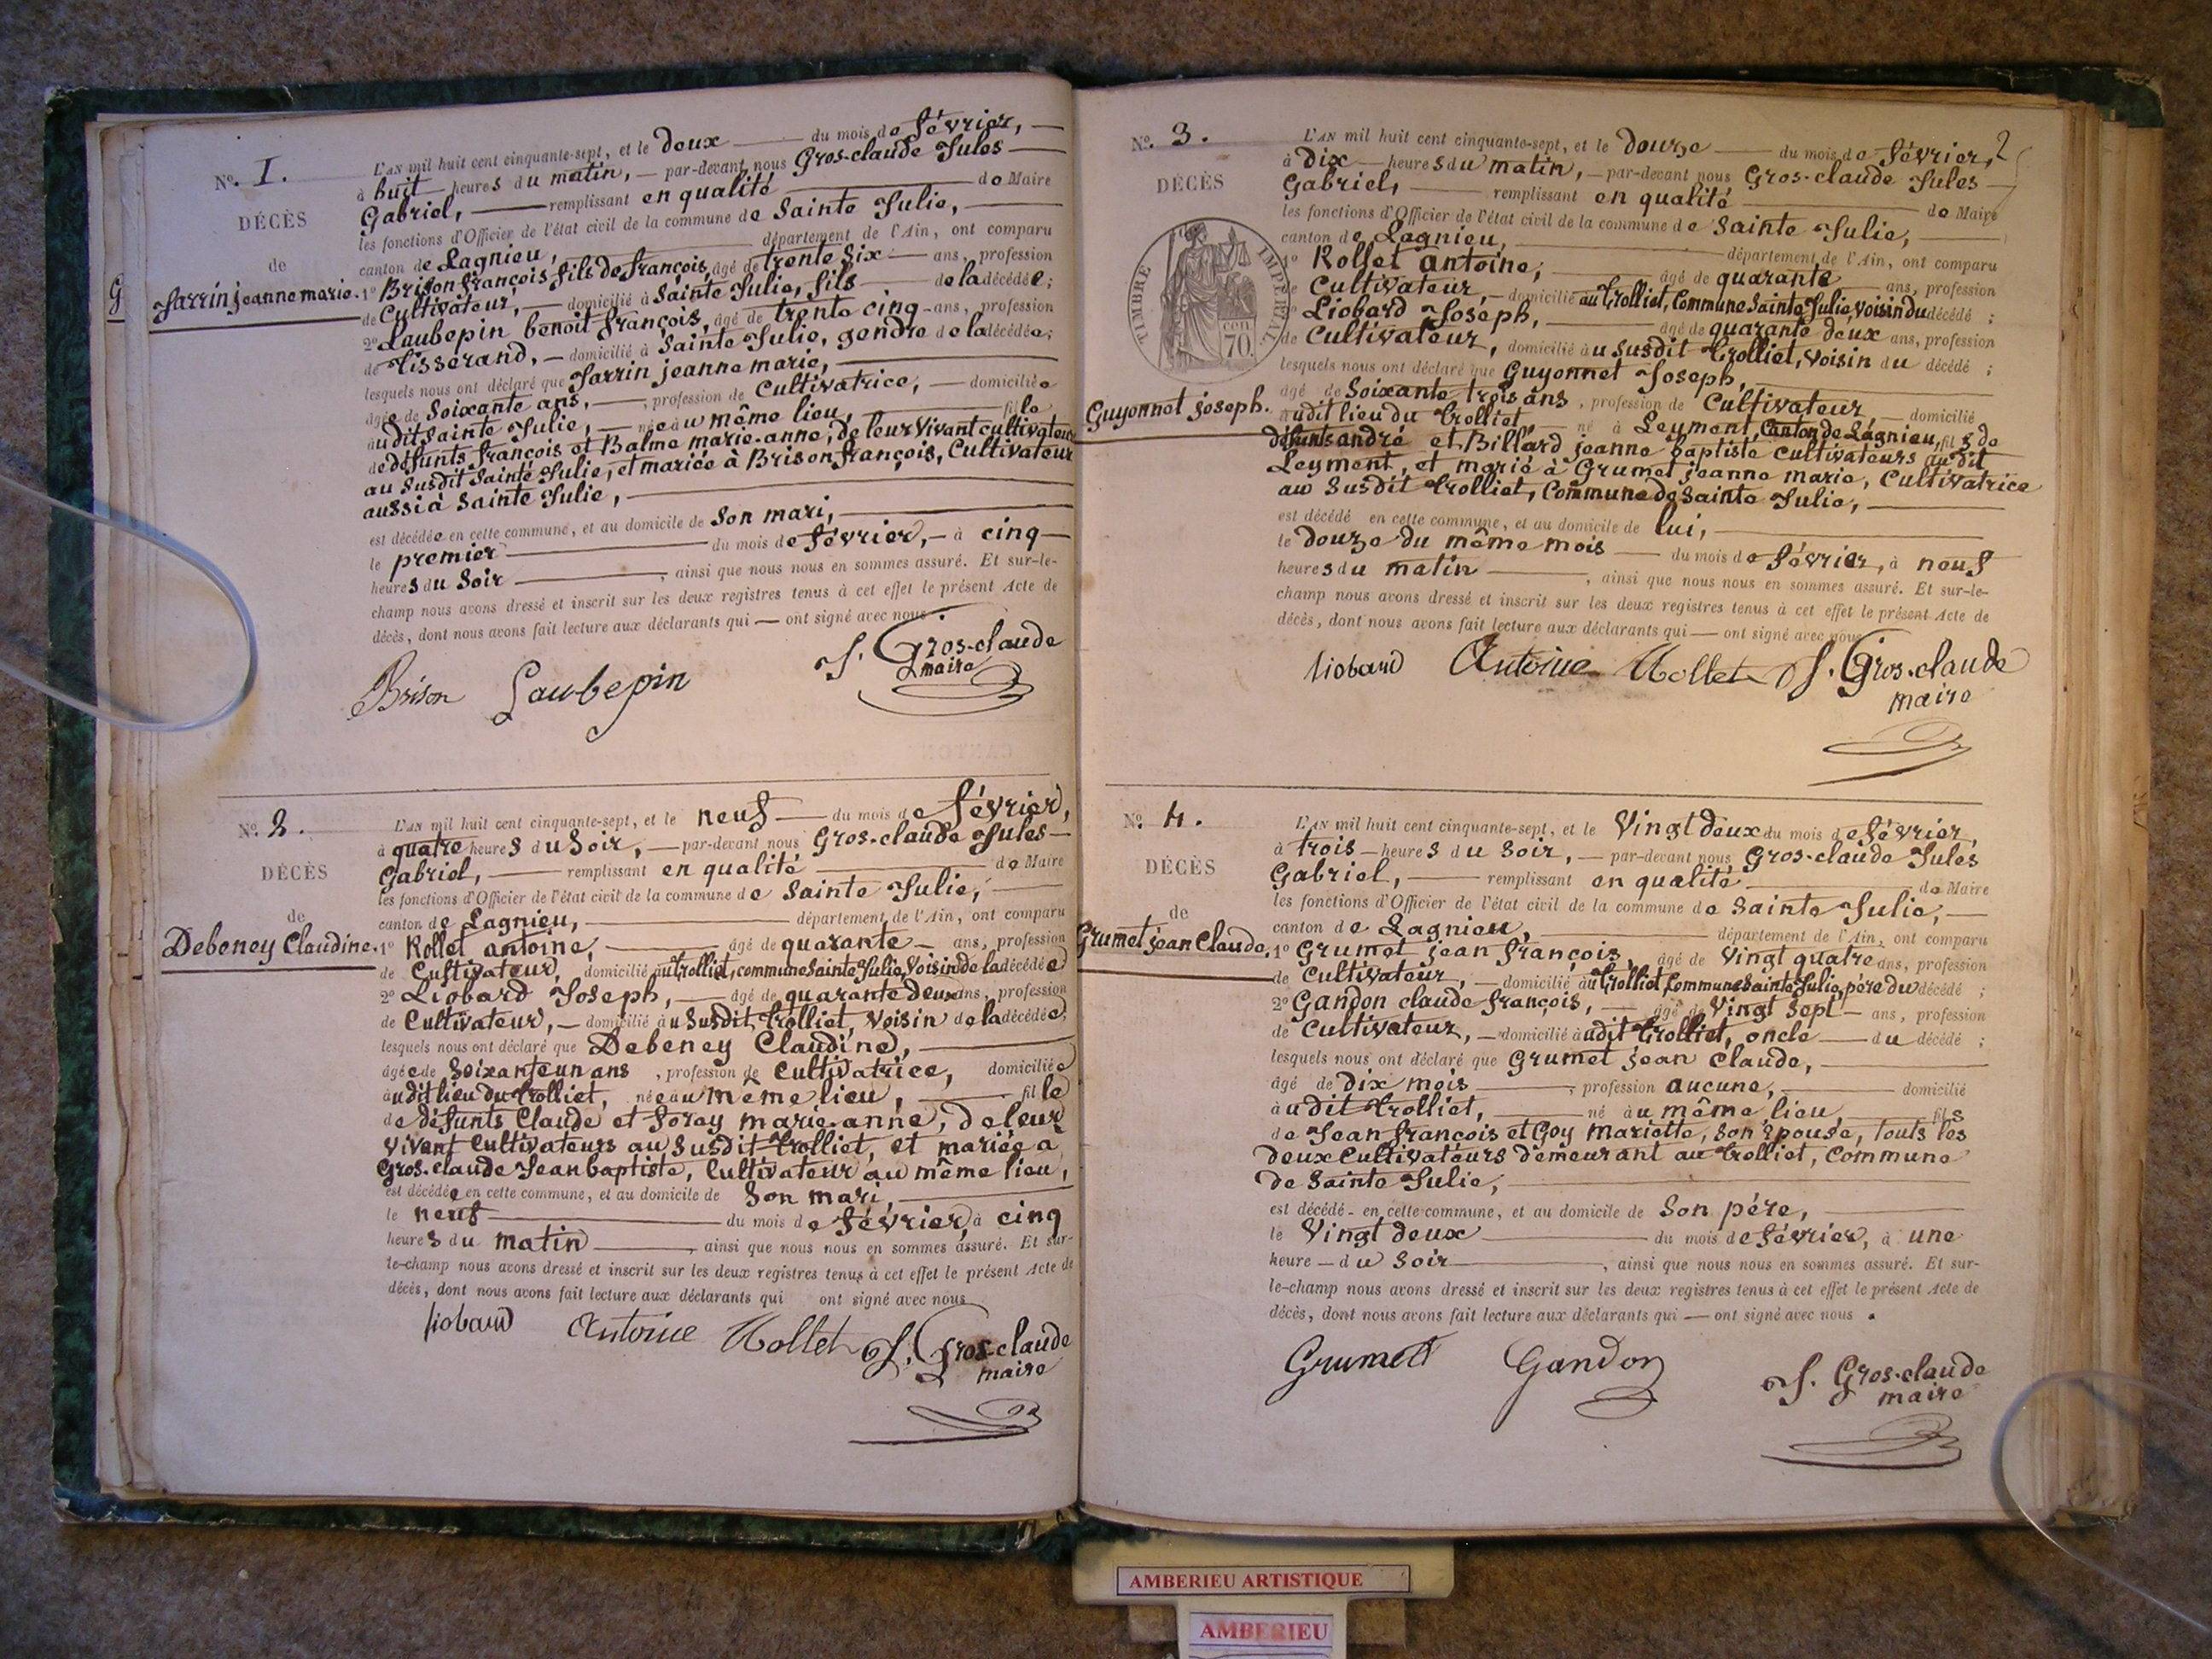 No. 1.
DÉCÈS
de
Jarrin jeanne marie.
G
L'AN mil huit cent cinquante-sept, et le deux du mois de février,
à huit heures du matin, par-devant nous Gros-claude Jules
Gabriel, remplissant en qualité de Maire
les fonctions d'Officier de l'état civil de la commune de Sainte Julie,
canton de Lagnieu, département de l'Ain, ont comparu
1° Brison françois fils de françois, âgé de trente six ans, profession
de Cultivateur, domicilié à Sainte Julie, fils de la décédée;
2° Laubepin benoit françois, âgé de trente cinq ans, profession
de Tisserand, domicilié à Sainte Julie, gendre de la décédée;
lesquels nous ont déclaré que Jarrin jeanne marie,
âgée de Soixante ans, profession de Cultivatrice, domiciliée
au dit Sainte Julie, née au même lieu, fille
de défunts françois et Balme marie-anne, de leur vivant cultivateurs
au Susdit Sainte Julie, et mariée à Brison françois, Cultivateur
aussi à Sainte Julie,
est décédée en cette commune, et au domicile de Son mari,
le premier du mois de février, à cinq
heures du Soir, ainsi que nous nous en sommes assuré. Et sur-le-
champ nous avons dressé et inscrit sur les deux registres tenus à cet effet le présent Acte de
décès, dont nous avons fait lecture aux déclarants qui ont signé avec nous.
Brison Laubepin J. Gros-claude
maire
No. 2.
DÉCÈS
de
Debeney Claudine.
L'AN mil huit cent cinquante-sept, et le neuf du mois de février,
à quatre heures du Soir, par-devant nous Gros-claude Jules
Gabriel, remplissant en qualité de Maire
les fonctions d'Officier de l'état civil de la commune de Sainte Julie,
canton de Lagnieu, département de l'Ain, ont comparu
1° Rollet antoine, âgé de quarante ans, profession
de Cultivateur, domicilié au Trolliet, commune Sainte Julie, Voisin de la décédée
2° Liobard Joseph, âgé de quarante deux ans, profession
de Cultivateur, domicilié au Susdit Trolliet, Voisin de la décédée;
lesquels nous ont déclaré que Debeney Claudine,
âgée de Soixante un ans, profession de Cultivatrice, domiciliée
au dit lieu du Trolliet, née au même lieu, fille
de défunts Claude et foray marie-anne, de leur
vivant Cultivateurs au Susdit Trolliet, et mariée a
Gros-claude Jean baptiste, Cultivateur au même lieu,
est décédée en cette commune, et au domicile de Son mari,
le neuf du mois de février, à cinq
heures du matin, ainsi que nous nous en sommes assuré. Et sur-
le-champ nous avons dressé et inscrit sur les deux registres tenus à cet effet le présent Acte de
décès, dont nous avons fait lecture aux déclarants qui ont signé avec nous
liobard Antoine Rollet J. Gros-claude
maire
No. 3.
DÉCÈS
TIMBRE IMPÉRIAL
cen 70.
Guyonnet joseph.
2
L'AN mil huit cent cinquante-sept, et le douze du mois de février,
à dix heures du matin, par-devant nous Gros-claude Jules
Gabriel, remplissant en qualité de Maire
les fonctions d'Officier de l'état civil de la commune de Sainte Julie,
canton de Lagnieu, département de l'Ain, ont comparu
1° Rollet antoine, âgé de quarante ans, profession
de Cultivateur, domicilié au Trolliet, Commune Sainte Julie, voisin du décédé;
2° Liobard Joseph, âgé de quarante deux ans, profession
de Cultivateur, domicilié au susdit Trolliet, voisin du décédé;
lesquels nous ont déclaré que Guyonnet Joseph,
âgé de Soixante trois ans, profession de Cultivateur domicilié
au dit lieu du Trolliet né à Leyment, Canton de Lagnieu, fils de
défunts andré et Billard jeanne baptiste cultivateurs au dit
Leyment, et marié à Grumet jeanne marie, Cultivatrice
au Susdit Trolliet, Commune de Sainte Julie,
est décédé en cette commune, et au domicile de lui,
le douze du même mois du mois de février, à neuf
heures du matin, ainsi que nous nous en sommes assuré. Et sur-le-
champ nous avons dressé et inscrit sur les deux registres tenus à cet effet le présent Acte de
décès, dont nous avons fait lecture aux déclarants qui ont signé avec nous
liobard Antoine Rollet J. Gros-claude
maire
No. 4.
DÉCÈS
de
Grumet jean Claude.
L'AN mil huit cent cinquante-sept, et le Vingt deux du mois de février,
à trois heures du Soir, par-devant nous Gros-claude Jules
Gabriel, remplissant en qualité de Maire
les fonctions d'Officier de l'état civil de la commune de Sainte Julie,
canton de Lagnieu, département de l'Ain, ont comparu
1° Grumet jean françois, âgé de Vingt quatre ans, profession
de Cultivateur, domicilié au Trolliet, Commune Sainte Julie, père du décédé;
2° Gandon claude françois, âgé de Vingt Sept ans, profession
de Cultivateur, domicilié audit Trolliet, oncle du décédé;
lesquels nous ont déclaré que Grumet jean claude,
âgé de dix mois, profession aucune, domicilié
audit Trolliet, né au même lieu fils
de Jean françois et Goy mariette, Son épouse, touts les
deux Cultivateurs demeurant au Trolliet, Commune
de Sainte Julie,
est décédé en cette commune, et au domicile de Son père,
le Vingt deux du mois de février, à une
heure du Soir, ainsi que nous nous en sommes assuré. Et sur-
le-champ nous avons dressé et inscrit sur les deux registres tenus à cet effet le présent Acte de
décès, dont nous avons fait lecture aux déclarants qui ont signé avec nous.
Grumet Gandon J. Gros-claude
maire
AMBERIEU ARTISTIQUE
AMBERIEU